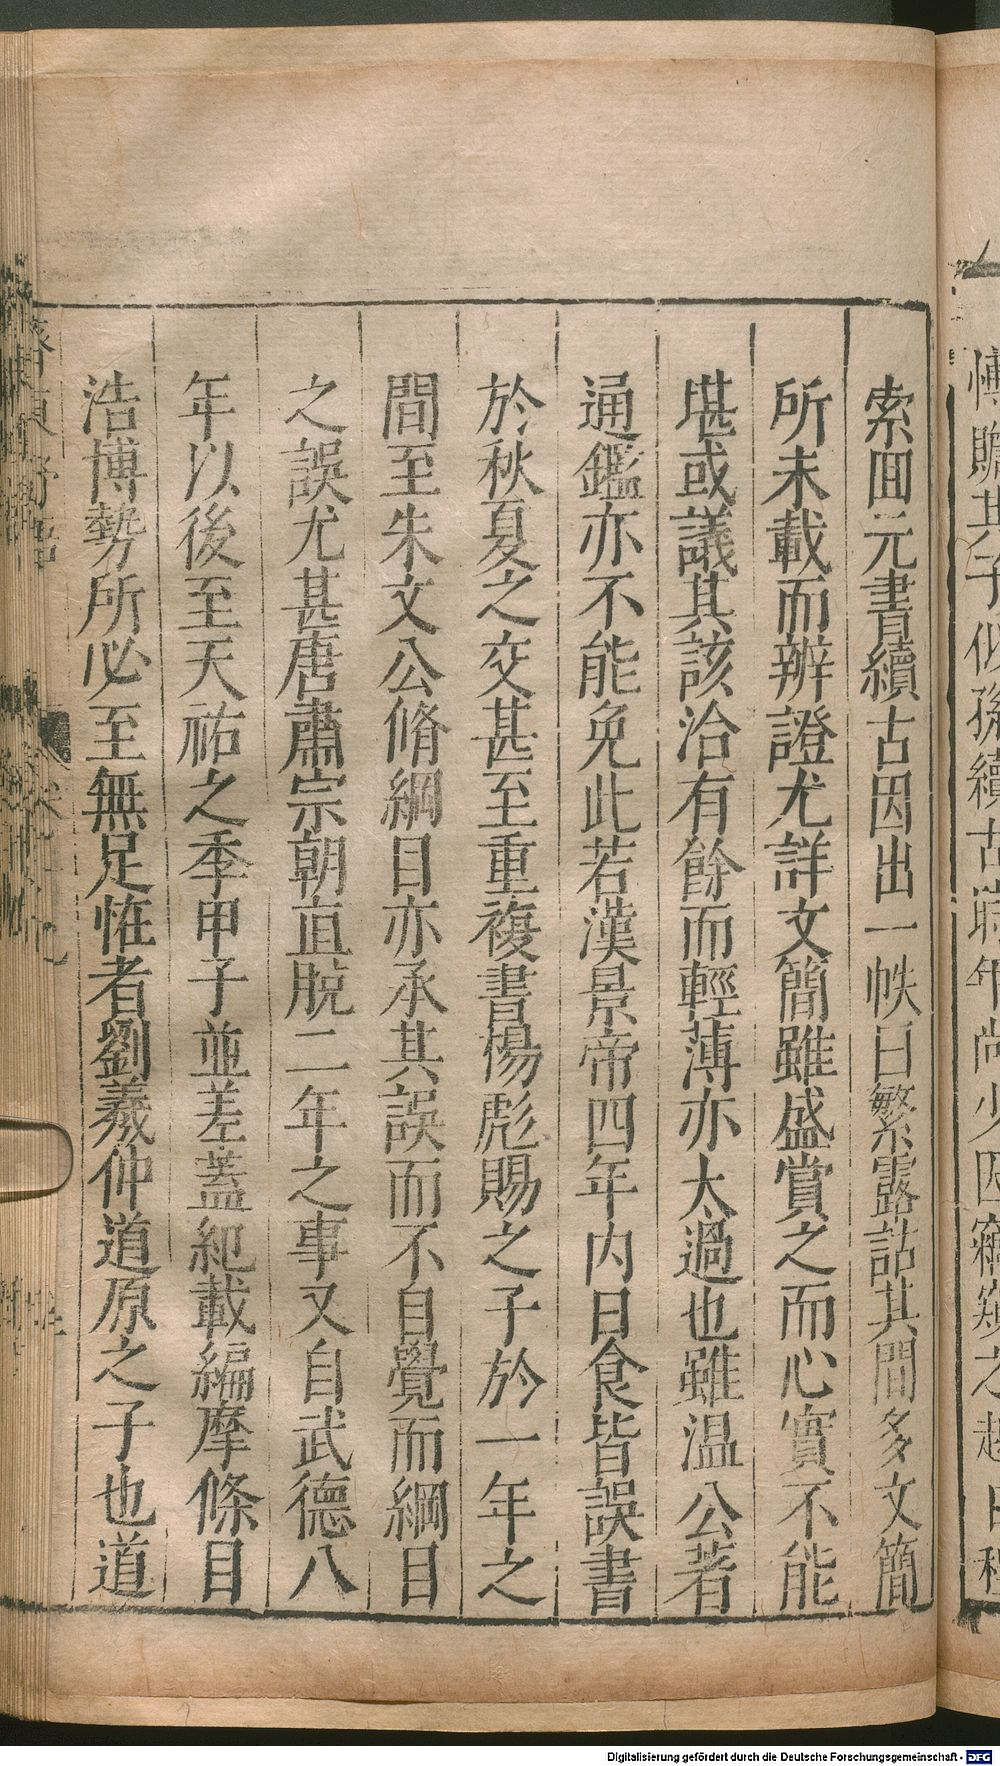 博贍其子似孫續古時年尚少因竊窺之越日程
索回元書續古因出一帙曰繁露詰其間多文簡
所未載而辨證尤詳文簡雖盛賞之而心實不能
堪或議其該洽有餘而輕薄亦太過也雖温公著
通鑑亦不能免此若漢景帝四年内日食皆誤書
於秋夏之交甚至重複書楊彪賜之子於一年之
間至朱文公脩綱目亦承其誤而不自覺而綱目
之誤尤甚唐肅宗朝直脱二年之事又自武德八
年以後至天祐之季甲子並差蓋紀載編摩條目
浩博勢所必至無足恠者劉羲仲道原之子也道
Digitalisierung gefördert durch die Deutsche Forschungsgemeinschaft - DFG